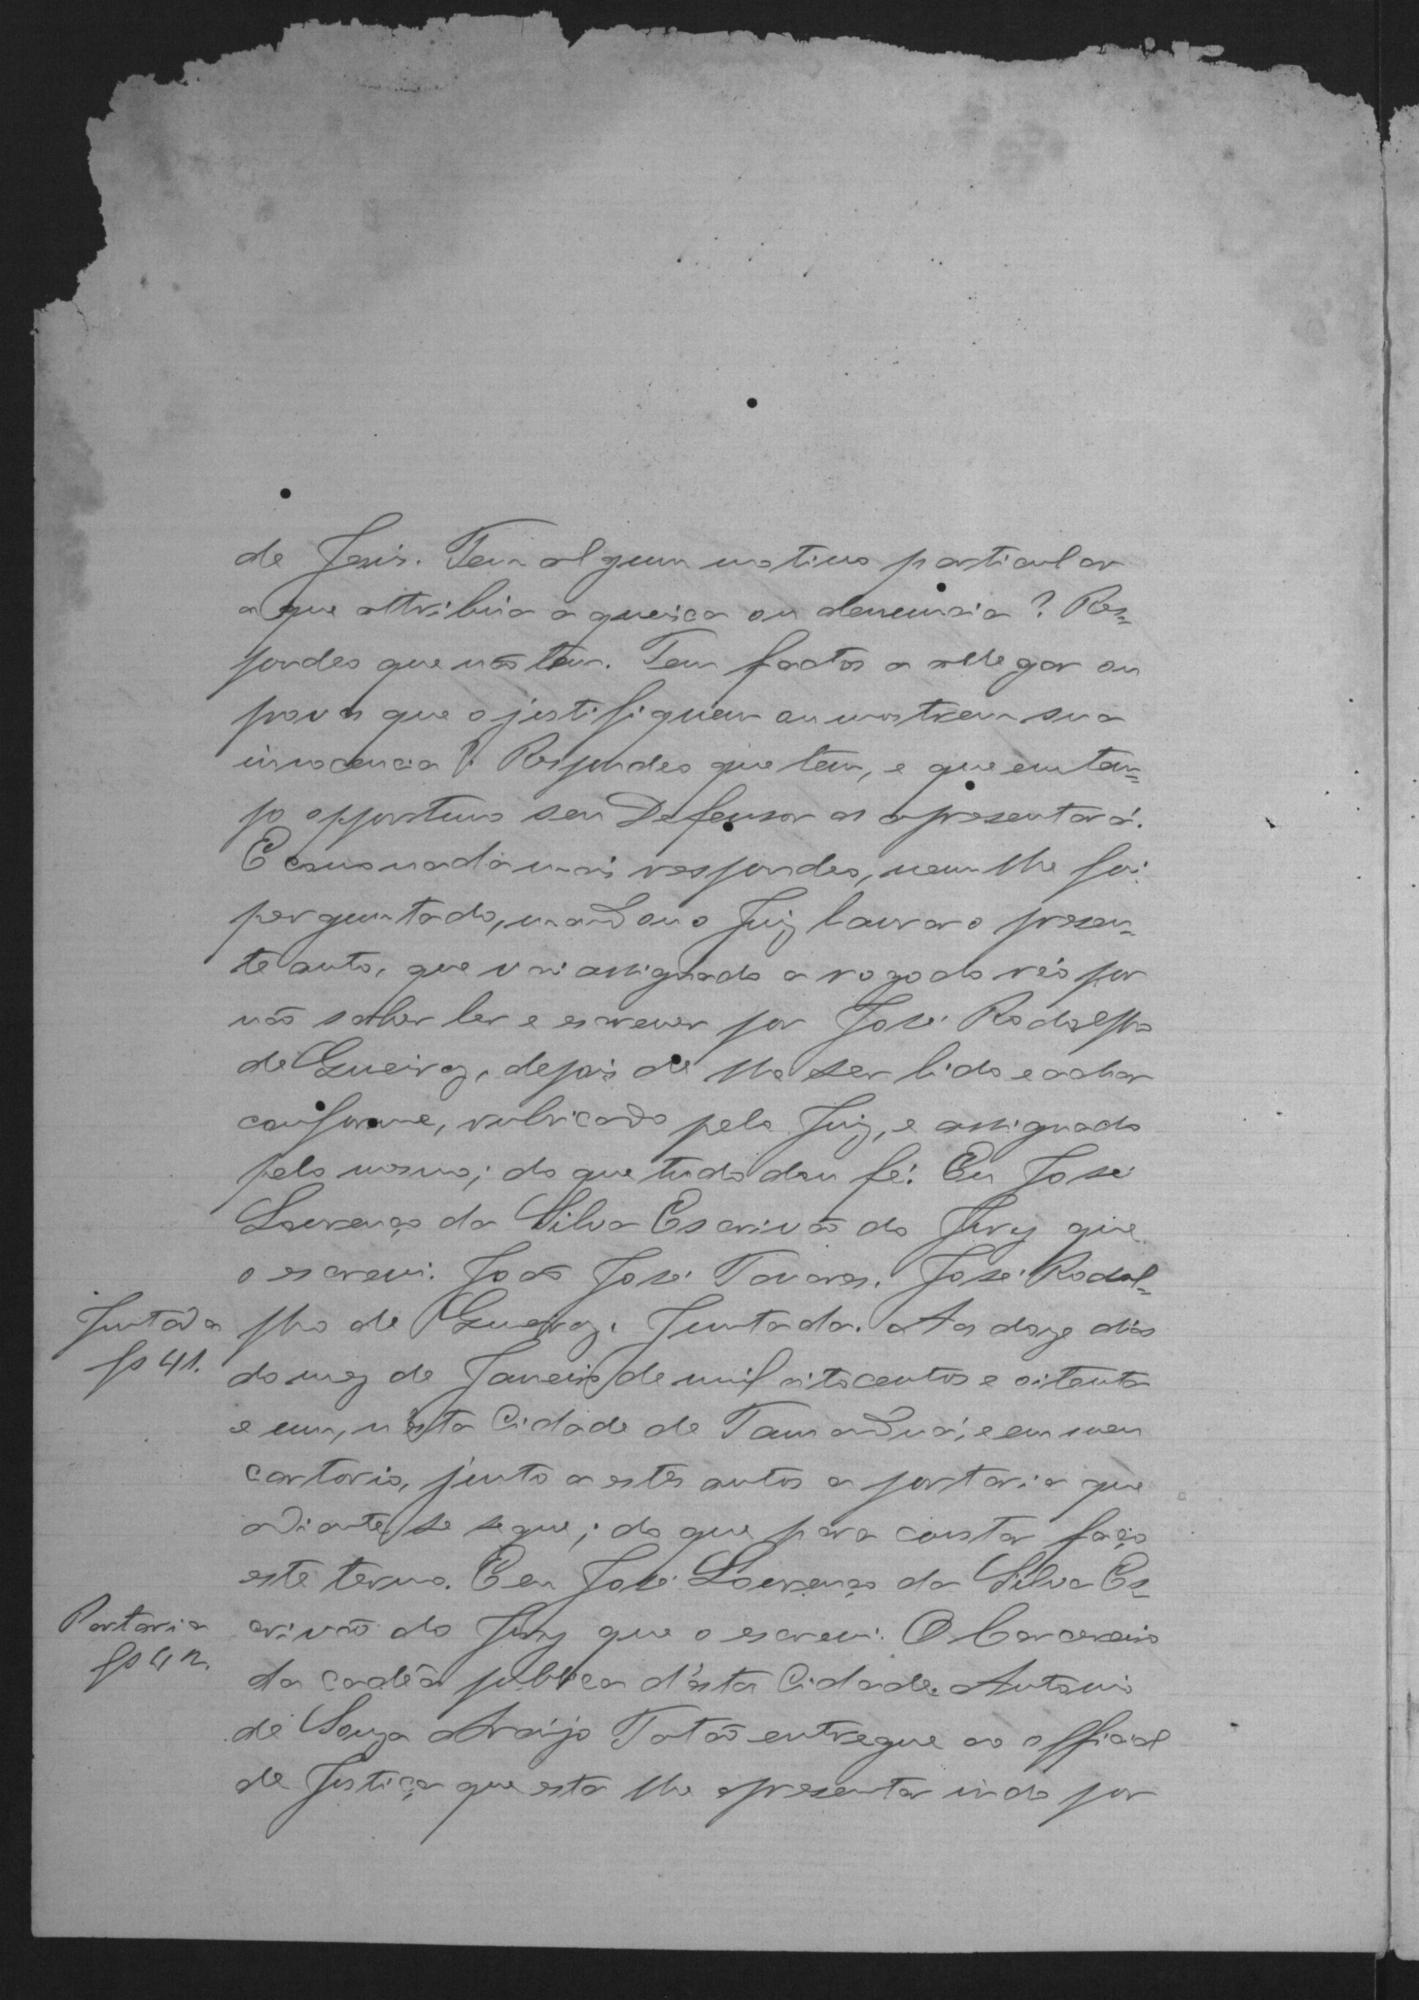 de Jesus. Tem algum motivo particular
a que attribua a queixa ou denuncia? Res=
pondeo que não tem. Tem factos a allegar ou
provas que o justifiquem ou mostrem sua
innocencia? Respondeo que tem, e que em tem=
po opportuno seu Defensor as apresentará.
E como nada mais respondeo, nem lhe foi
perguntado, mandou o Juiz lavrar o presen=
te auto, que vai assignado a rogo do réo por
não saber ler e escrever por José Rodolpho
de Queiroz, depois de lhe ser lido e achar
conforme, rubricado pelo Juiz, e assignado
pelo mesmo; do que tudo dou fé. Eu José
Lourenço da Silva Escrivão do Jury que
o escrevi. João José Tavares. José Rodol=
Juntada
fs 41.
pho de Queiroz. Juntada. Aos doze dias
do mez de Janeiro de mil oitocentos e oitenta
e um, n'esta Cidade de Tamanduá, e em meu
cartorio, junto a estes autos a portaria que
adiante se segue; do que para constar faço
este termo. Eu José Lourenço da Silva Es=
Portaria
fs 42.
crivão do Jury que o escrevi. O Carcereiro
da cadêa publica d'esta Cidade Antonio
de Souza Araujo Tatão entregue ao official
de Justiça que esta lhe apresentar indo por